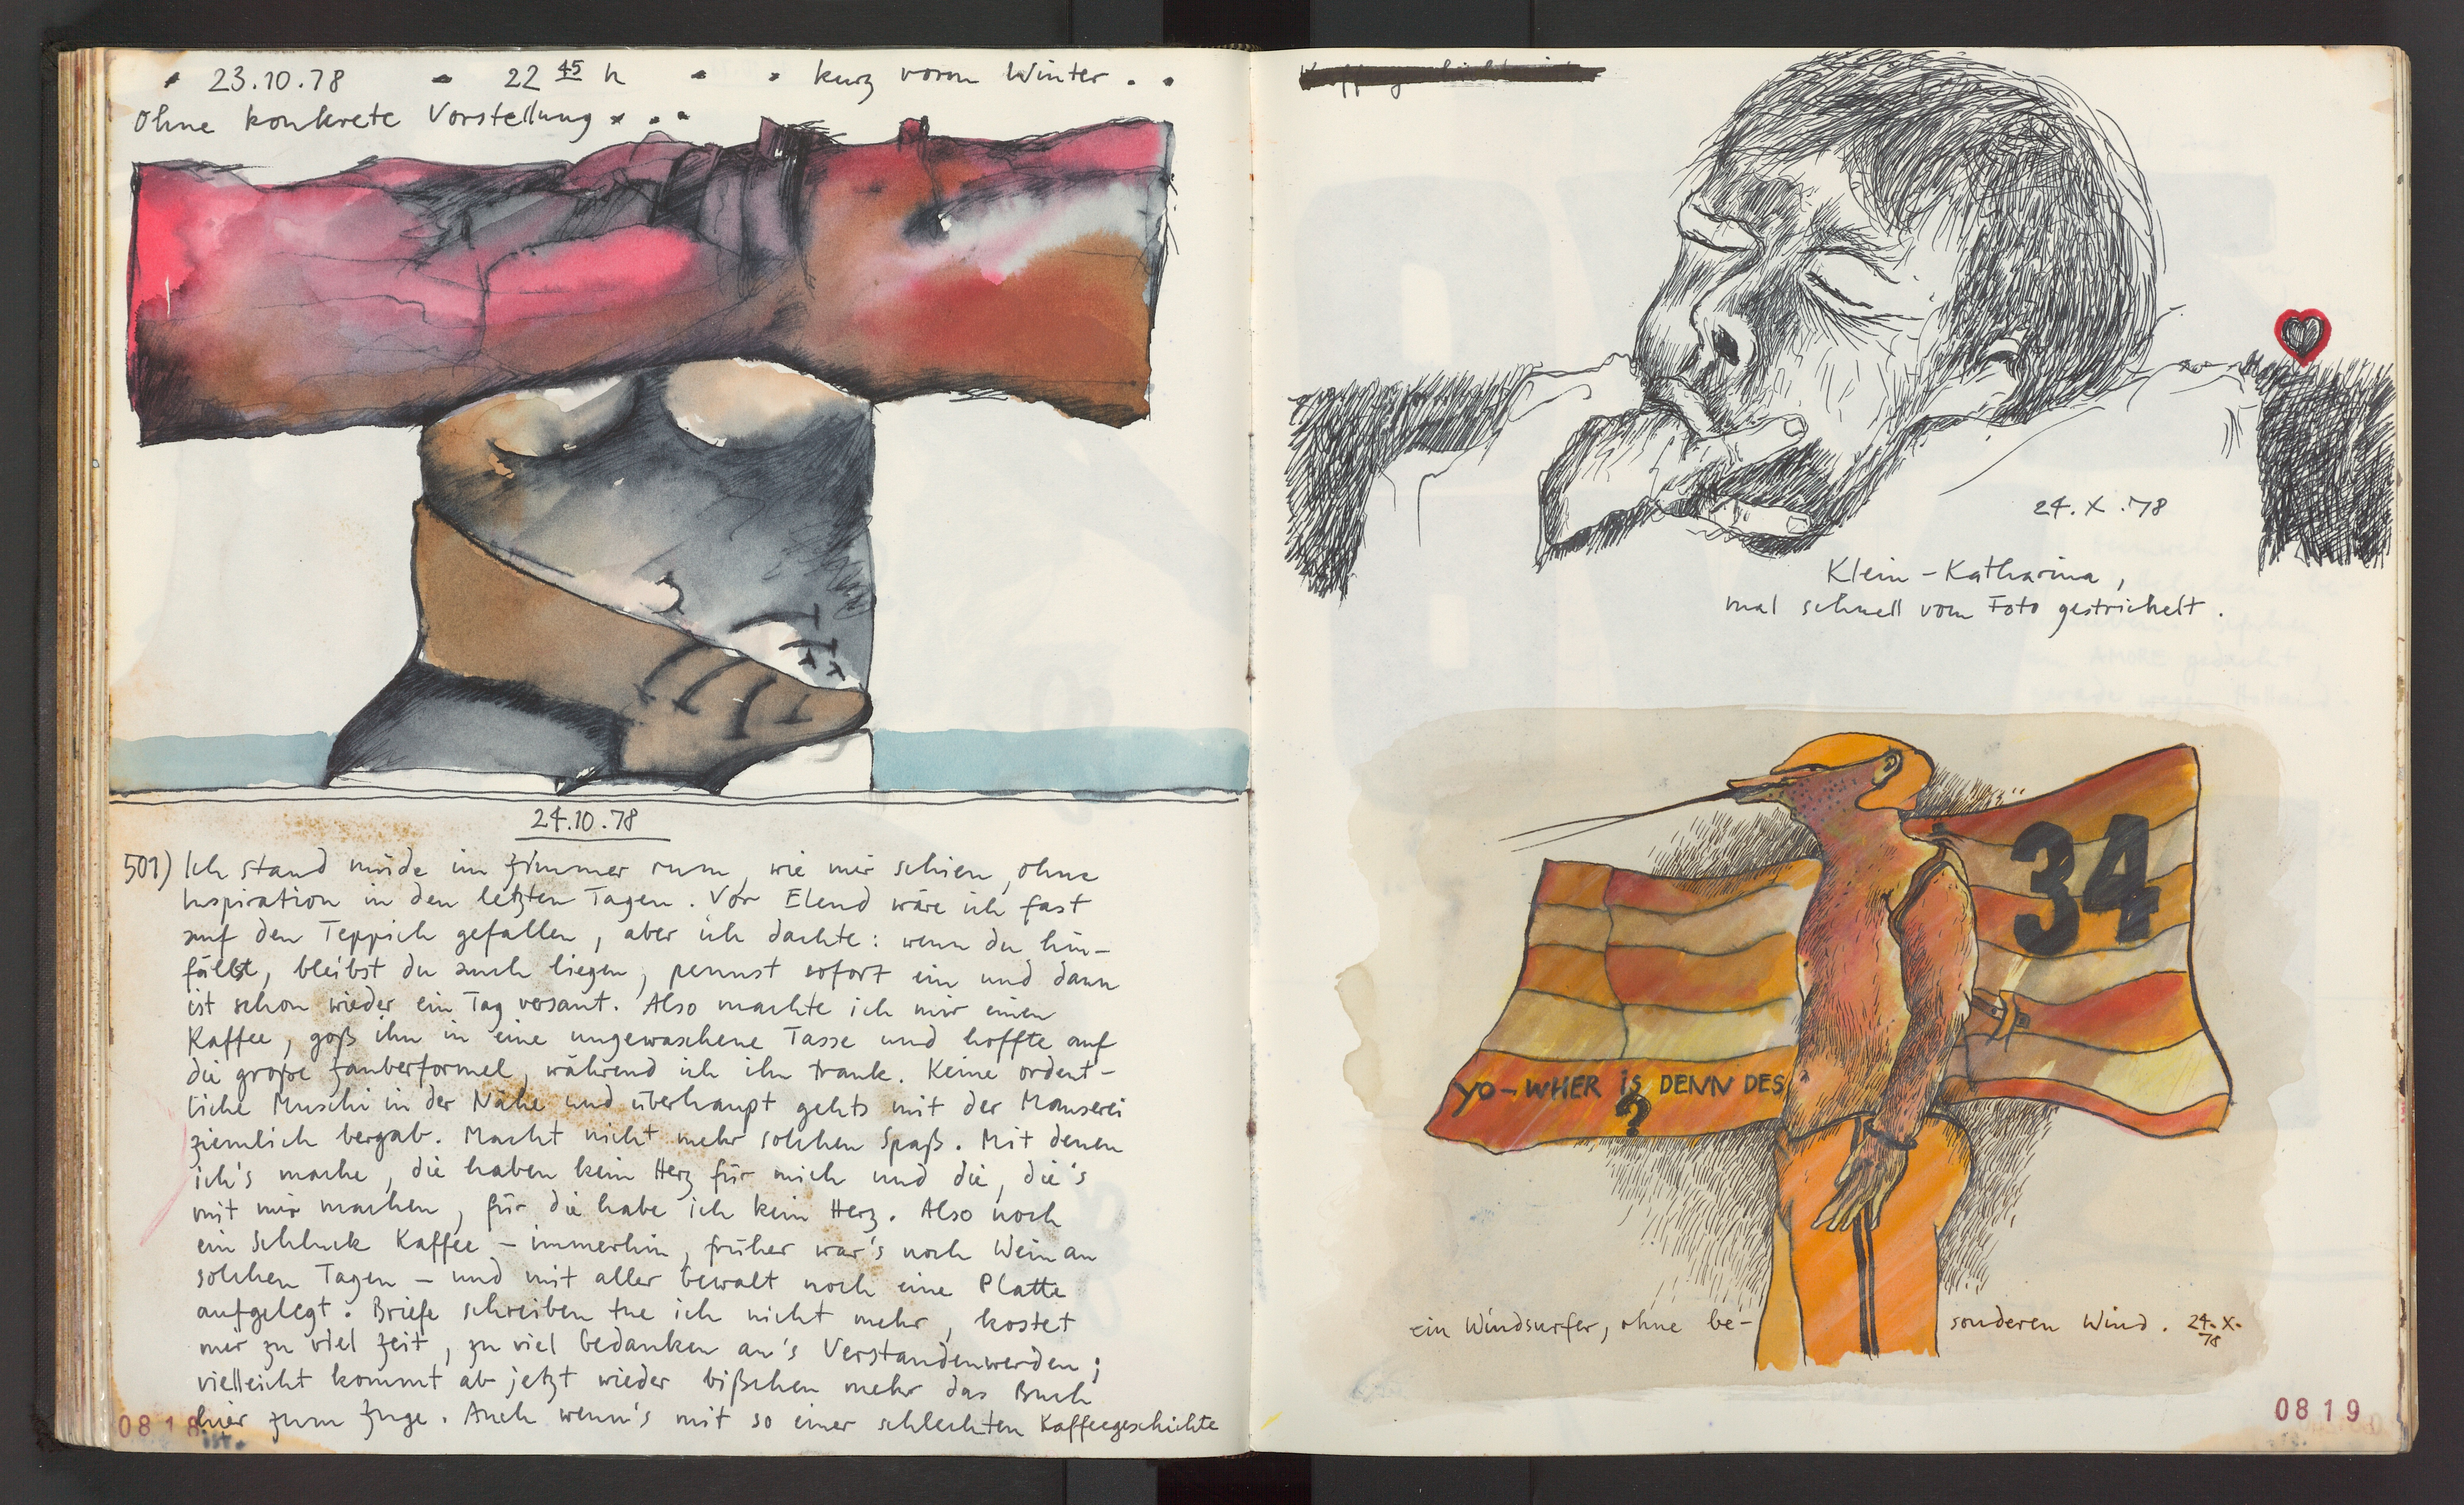 • 23.10.78 • 22 45 h • • kurz vorm Winter • •
Ohne konkrete Vorstellung • • •
24.10.78
501) Ich stand müde im Zimmer rum, wie mir schien, ohne
Inspiration in den letzten Tagen. Vor Elend wäre ich fast
auf den Teppich gefallen, aber ich dachte: wenn du hin-
fällst, bleibst du auch liegen, pennst sofort ein und dann
ist schon wieder ein Tag versaut. Also machte ich mir einen
Kaffee, goß ihn in eine ungewaschene Tasse und hoffte auf
die große Zauberformel, während ich ihn trank. Keine ordent-
liche Muschi in der Nähe und überhaupt gehts mit der Mauserei
ziemlich bergab. Macht nicht mehr solchen Spaß. Mit denen
ich's mache, die haben kein Herz für mich und die, die's
mit mir machen, für die habe ich kein Herz. Also noch
ein Schluck Kaffee – immerhin, früher war's noch Wein an
solchen Tagen – und mit aller Gewalt noch eine Platte
aufgelegt. Briefe schreiben tue ich nicht mehr, kostet
mir zu viel Zeit, zu viel Gedanken an's Verstandenwerden;
vielleicht kommt ab jetzt wieder bißchen mehr das Buch
hier zum Zuge. Auch wenn's mit so einer schlechten Kaffeegeschichte
ist.
0818
24. X. 78
Klein-Katharina,
mal schnell vom Foto gestrichelt.
34
YO-WHER IS DENN DES
?
ein Windsurfer, ohne be- sonderen Wind. 24. X.
78
0819